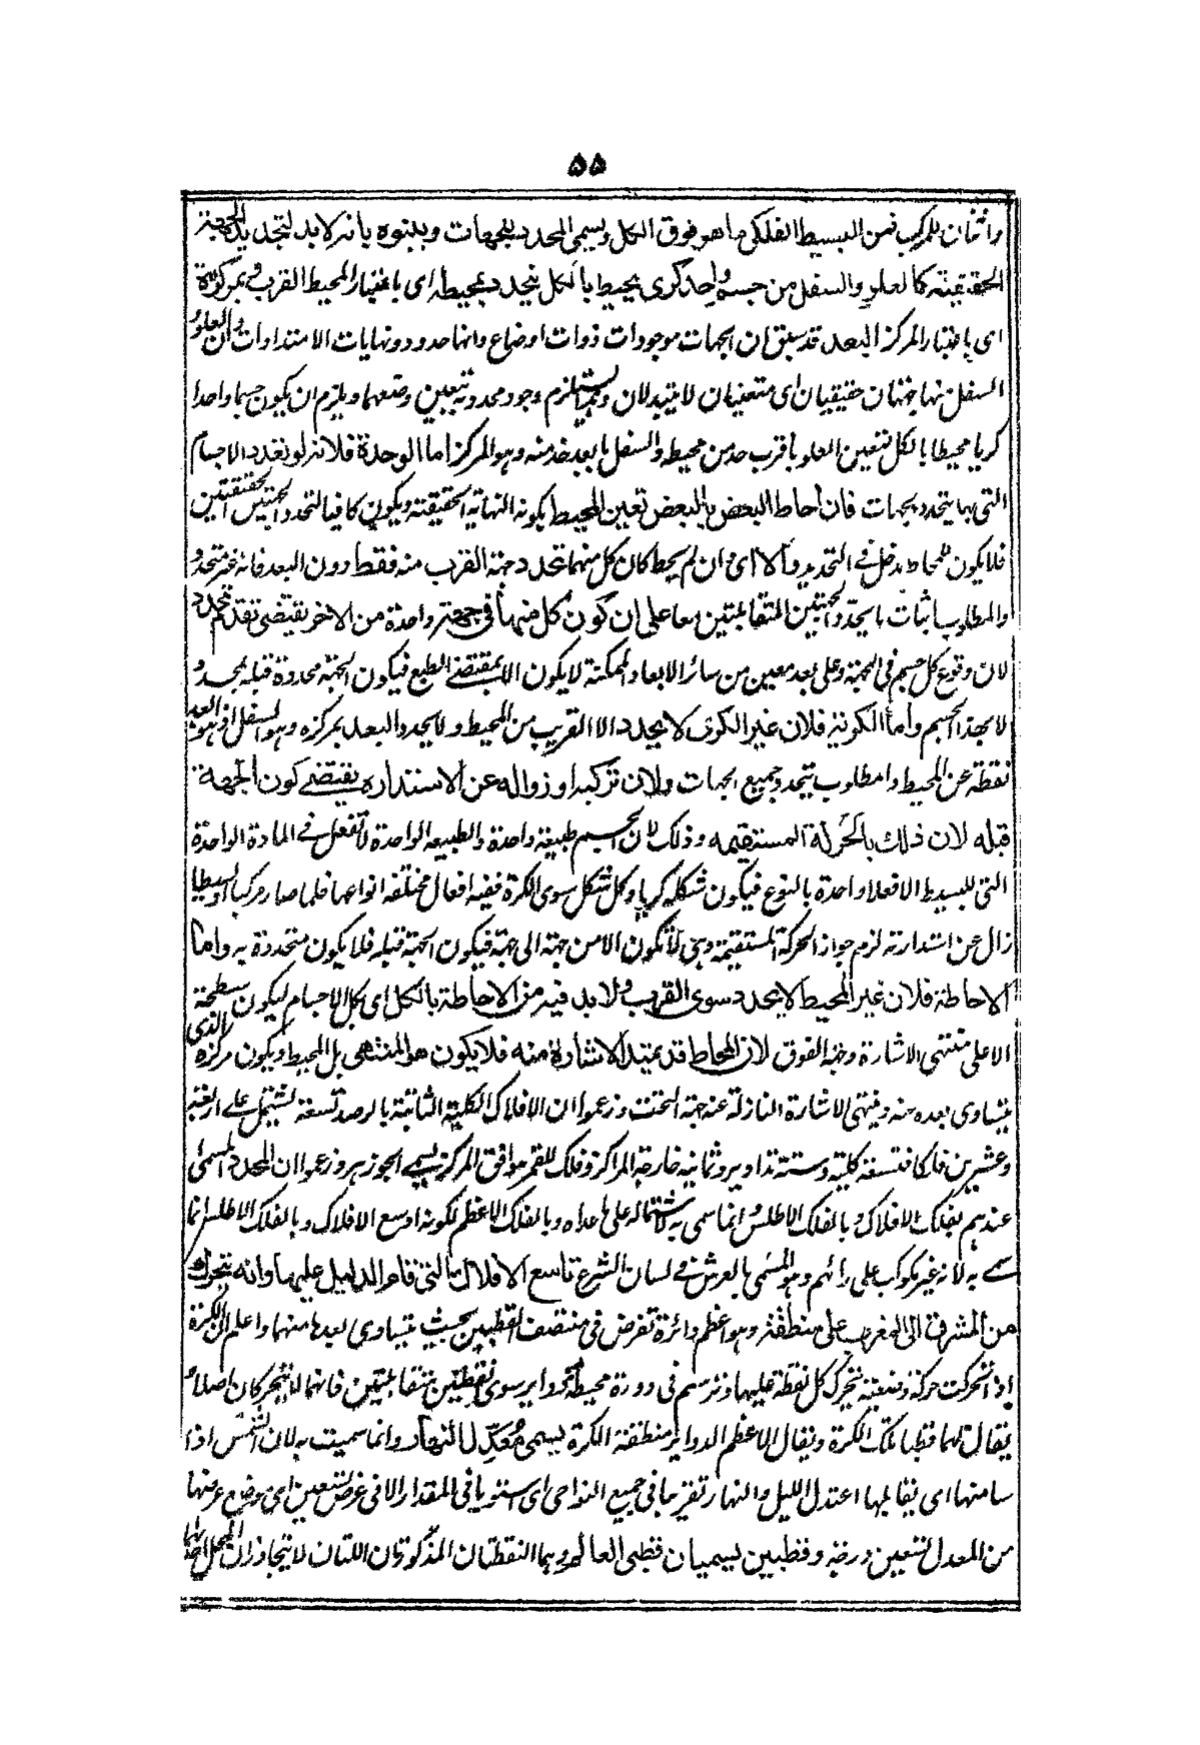 ۵۵
واثنان للمركب فمن البسيط الفلكى ما هو فوق الكل ويسمى المحدد للجهات وبينوه بانه لابد لتجدد الجهة
الحقيقية كالعلو والسفل من جسم واحد كرى يحيط بالكل يتحدد بمحيطه اى باعتبار المحيط القرب وبمركزة
اى باعتبار المركز البعد قد سبق ان الجهات موجودات ذوات اوضاع وانها حدود ونهايات الامتدادات وان العلو
السفل منها جهتان حقيقيان اى متعينان لا يتبدلان وهما يستلزم وجود محدد به تعيين وضعهما ويلزم ان يكون جسما واحدا
كريا محيطا بالكل تتعين العلو باقرب حد من محيطه والسفل بابعد حد منه وهو المركز اما الوحدة فلانه لو تعدد الاجسام
التى بها يتحدد الجهات فان احاط البعض بالبعض تعين المحيط بكونه النهاية الحقيقية ويكون كافيا لتحدد الجهتين الحقيقتين
فلا يكون للمحاط دخل فى التحديد والا اى وان لم يحط كان كل منهما يتحدد جهة القرب منه فقط دون البعد فانه غير متحدد
والمطلوب اثبات ما يحدد الجهتين المتقابلتين معا على ان كون كل منهما فى جهة واحدة من الاخر يقتضى تقدم تحدد
لان وقوع كل جسم فى الجهة وعلى بعد معين من سائر الابعاد الممكنة لا يكون الا بمقتضى الطبع فيكون الجهة محدودة قبله بمحدد
لا بهذا الجسم واما الكونية فلان غير الكرى لا يحدد الا القريب من المحيط ولا يحدد البعد بمركزه وهو السفل اذ هو ابعد
نقطة عن المحيط والمطلوب يتحدد جميع الجهات ولان تركبه او زواله عن الاستداره يقتضى كون الجهة
قبله لان ذلك بالحركة المستقيمه وذلك لان الجسم طبيعة واحدة والطبيعه الواحدة لا تفعل فى المادة الواحدة
التى للبسيط الا فعلا واحدة بالنوع فيكون شكله كريا وكل شكل سوى الكرة ففيه افعال مختلفه انواعها فلما صار مركبا او بسيطا
زال عن استدارته لزم جواز الحركة المستقيمة وهى لا تكون الا من جهة الى جهة فيكون الجهة قبله فلا يكون متحددة به واما
الاحاطة فلان غير المحيط لا يحدد سوى القرب ولابد فيه من الاحاطة بالكل اى بكل الاجسام ليكون سطحة
الاعلى منتهى الاشارة وجهة الفوق لان المحاط قد يمتد الاشارة منه فلا يكون هو المنتهى بل المحيط ويكون مركزه الذى
يتساوى بعده منه وينتهى الاشارة النازلة عنه جهة التحت وزعموا ان الافلاك الكلية الثابتة بالرصد تسعة تشتمل على اربعة
وعشرين فلكا تسعة كلية وستة تداوير وثمانية خارجة المراكز وفلك للقمر موافق المركز يسمى الجوزهر وزعموا ان المحدد المسمى
عندهم بفلك الافلاك وبالفلك الاطلس وانما سمى به لاشتماله على ما عداه وبالفلك الاعظم لكونه اوسع الافلاك وبالفلك الاطلس انما
سمى به لانه غير مكوكب على رائهم وهو المسمى بالعرش فى لسان الشرع تاسع الافلاك التى قام الدليل عليها وانه يتحرك
من المشرق الى المغرب على منطقة وهو اعظم دائرة تفرض فى منتصف القطبين بحيث يتساوى بعدها منهما واعلم ان الكرة
اذا تحركت حركة وضعية تحرك كل نقطة عليها وترتسم فى دورة محيط دواير سوى نقطتين متقابلتين فانهما لا تتحركان اصلا
يقال لهما قطبا تلك الكرة ويقال لاعظم الدواير منطقة الكرة يسمى معدل النهار وانما سميت به لان الشمس اذا
سامتها اى تقابلها اعتدل الليل والنهار تقريبا فى جميع النواحى اى استويا فى المقدار الا فى عرض تسعين اى موضع عرضها
من المعدل تسعين درجة وقطبين يسميان قطبى العالم وهما النقطتان المذكورتان اللتان لا يتجاوزان